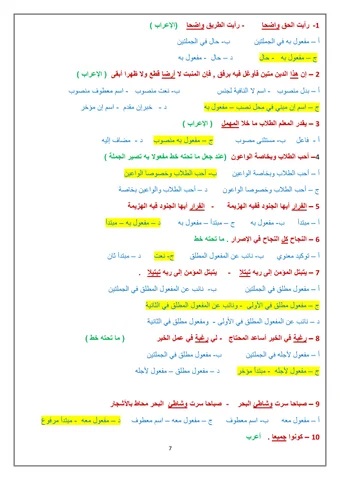 1- رأيت الحق واضحا - رأيت الطريق واضحا (الإعراب )
أ – مفعول به في الجملتين ب- حال في الجملتين
ج – مفعول به - حال د – حال - مفعول به
2 – إن هذا الدين متين فأوغل فيه برفق , فإن المنبت لا أرضا قطع ولا ظهرا أبقى ( الإعراب )
أ – بدل منصوب - اسم لا النافية لجنس ب- نعت منصوب - اسم معطوف منصوب
ج – اسم إن مبني في محل نصب – مفعول به د - خبر إن مقدم - اسم إن مؤخر
3 – يقدر المعلم الطلاب ما خلا المهمل ( الإعراب )
أ - فاعل ب- مستثنى منصوب ج – مفعول به منصوب د - مضاف إليه
4– أحب الطلاب وبخاصة الواعون (عند جعل ما تحته خط مفعولا به تصير الجملة )
أ – أحب الطلاب وبخاصة الواعين ب- أحب الطلاب وخصوصا الواعين
ج – أحب الطلاب وخصوصا الواعون د – أحب الطلاب والواعين بخاصة
5 – الفرار أيها الجنود ففيه الهزيمة - الفرار أيها الجنود فيه الهزيمة
أ – مبتدأ ب- مفعول به ج – مبتدأ – مفعول به د – مفعول به – مبتدأ
6 – النجاح كل النجاح في الإصرار . ما تحته خط
أ – توكيد معنوي ب- نائب عن المفعول المطلق ج- نعت د – مبتدأ ثان
7 – يتبتل المؤمن إلى ربه تبتيلا - يتبتل المؤمن إلى ربه تبتلا .
أ – مفعول مطلق في الجملتين ب- نائب عن المفعول المطلق في الجملتين
ج – مفعول مطلق في الأولى - ونائب عن المفعول المطلق في الثانية
د – نائب عن المفعول المطلق في الأولى - ومفعول مطلق في الثانية
8 – رغبة في الخير أساعد المحتاج - لي رغبة في عمل الخير ( ما تحته خط )
أ – مفعول لأجله في الجملتين ب- مفعول مطلق في الجملتين
ج – مفعول لأجله - مبتدأ مؤخر د – مفعول مطلق – مفعول لأجله
9 – صباحا سرت وشاطئ البحر - صباحا سرت وشاطئ البحر محاط بالأشجار
أ – مفعول به - مفعول معه ب- اسم معطوف ج – مفعول معه – اسم معطوف د – مفعول معه - مبتدأ مرفوع
10 – كونوا جميعا . أعرب
7